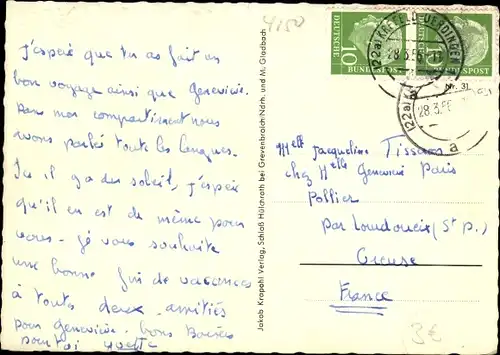 4150
j'espère que tu as fait un
bon voyage ainsi que Geneviève.
Dans mon compartiment nous
avons parlé tout les langues.
Ici il y a du soleil, j'espère
qu'il en est de même pour
vous - je vous souhaite
une bonne fin de vacances
à toutes deux. amitiés
pour Geneviève. bons Baisers
pour toi yvette
Jakob Krapohl Verlag, Schloß Hülchrath bei Grevenbroich/Ndrh. und M. Gladbach
DEUTSCHE
10
BUNDESPOST
BUNDESPOST
(22a) KREFELD-UERDINGEN
28.3.56
Nr. 31
(22a)
28.3.56
a
Melle Jacqueline Tissans
chez Melle Geneviève Paris
Pollier
Par Lourdoueix (St p.)
Creuse
France
3€